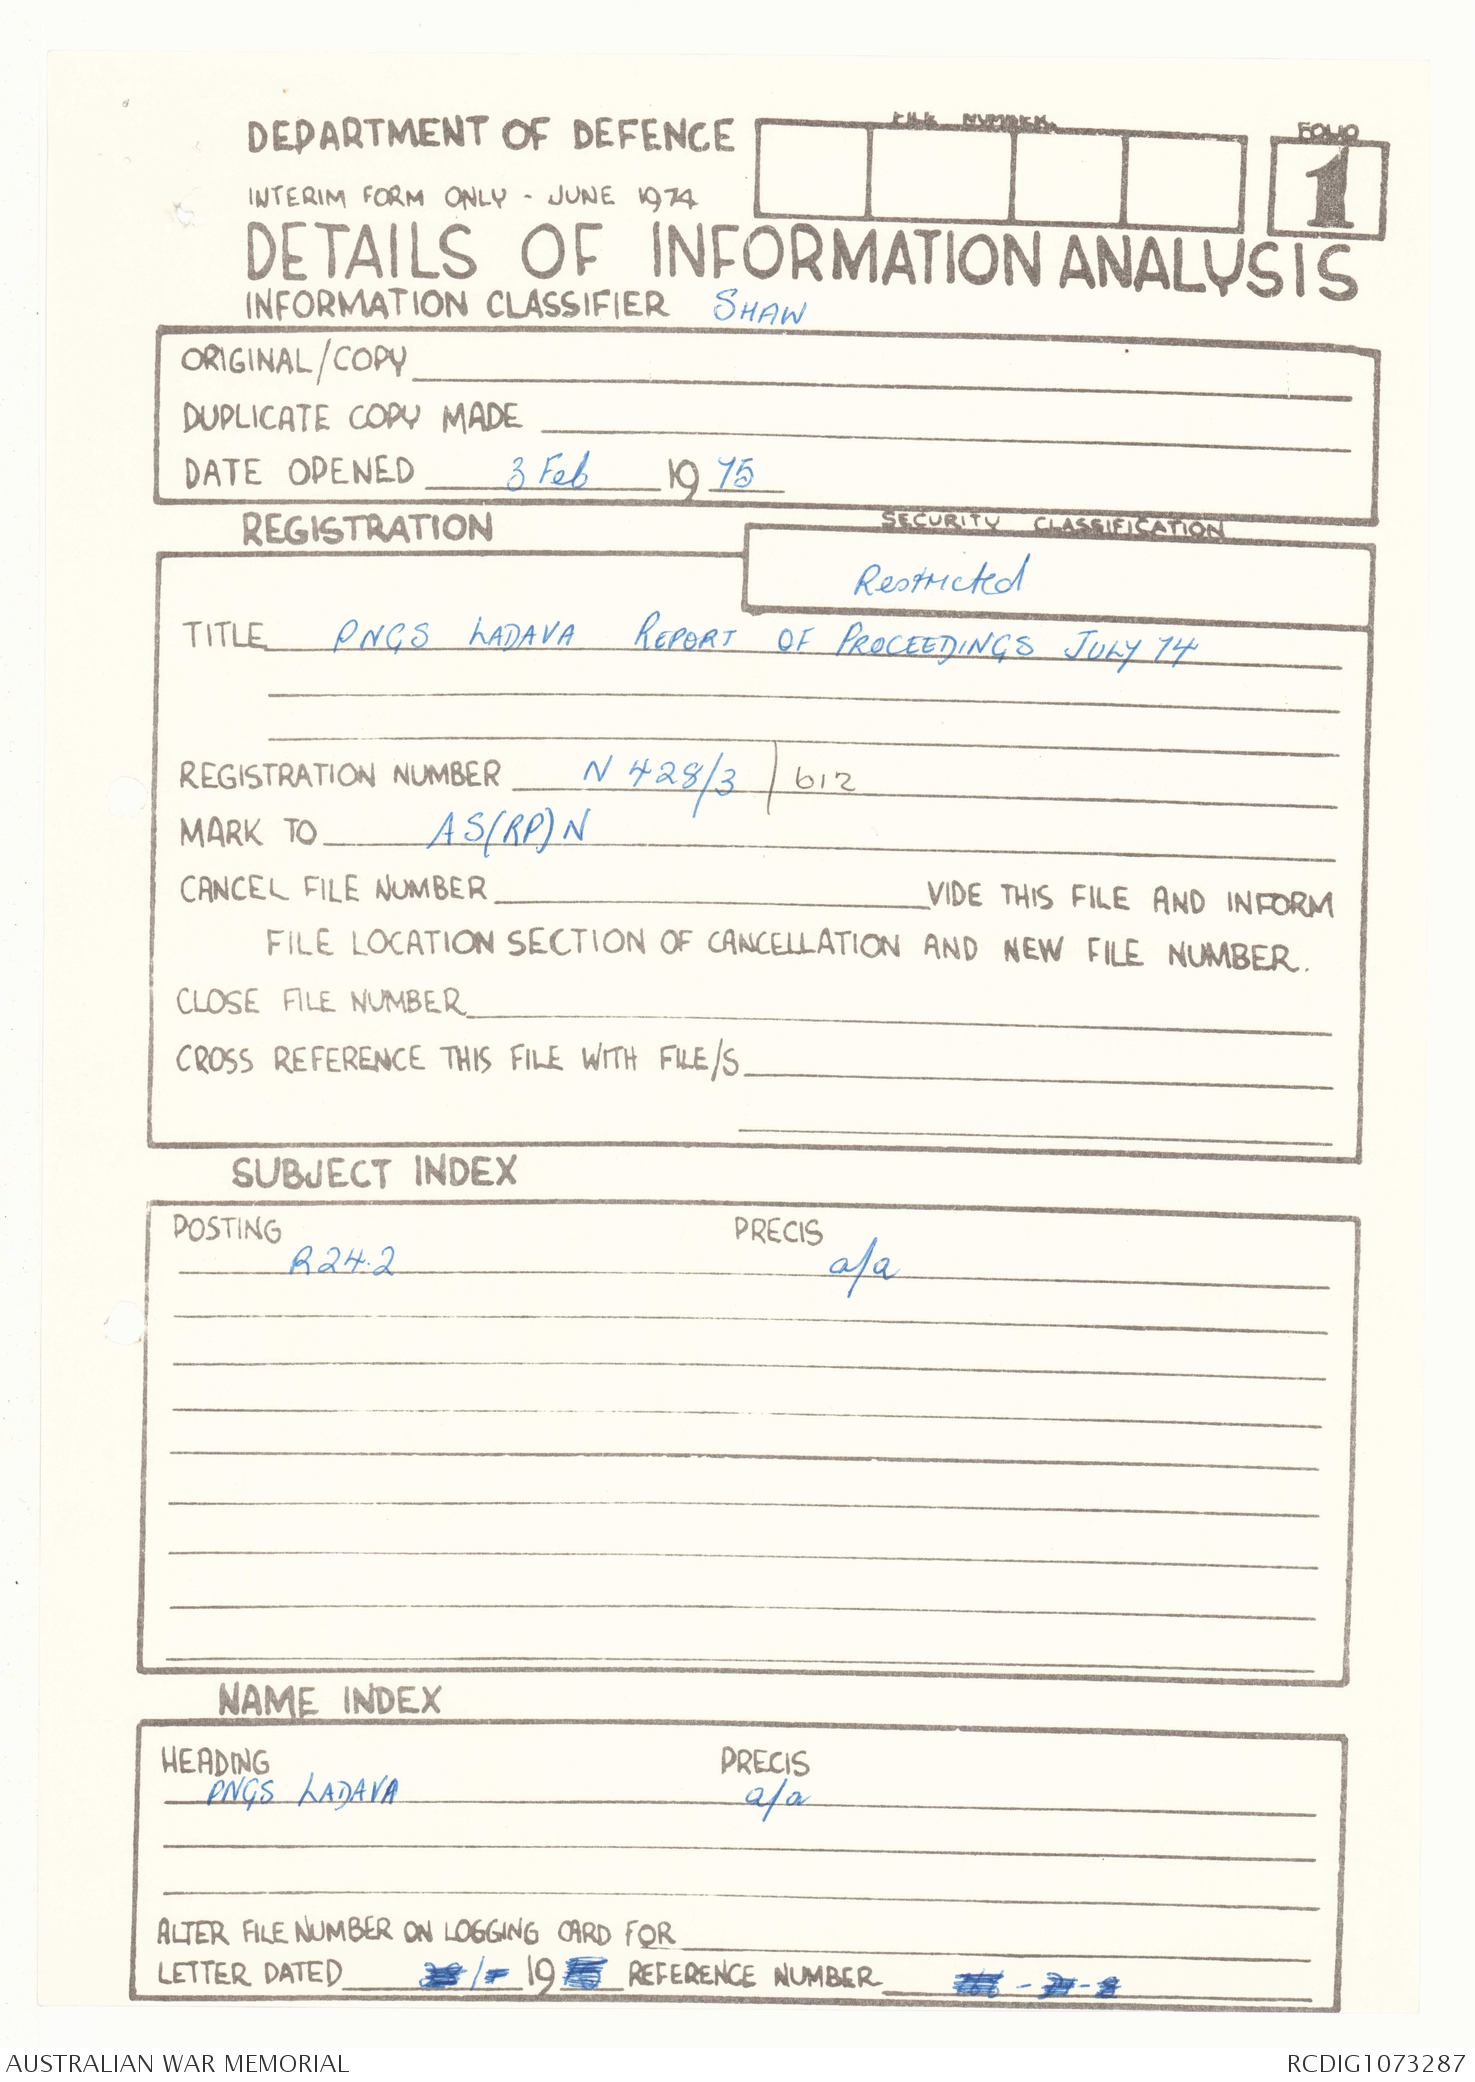 DEPARTMENT OF DEFENCE
FILE NUMBER
FOLIO
1
INTERIM FORM ONLY - JUNE 1974
DETAILS OF INFORMATION ANALYSIS
INFORMATION CLASSIFIER SHAW
ORIGINAL/COPY
DUPLICATE COPY MADE
DATE OPENED 3 Feb 1975
REGISTRATION
SECURITY CLASSIFICATION
Restricted
TITLE PNGS LADAVA REPORT OF PROCEEDINGS JULY 74
REGISTRATION NUMBER N 428/3 / 612
MARK TO AS(RP)N
CANCEL FILE NUMBER VIDE THIS FILE AND INFORM
FILE LOCATION SECTION OF CANCELLATION AND NEW FILE NUMBER.
CLOSE FILE NUMBER
CROSS REFERENCE THIS FILE WITH FILE/S
SUBJECT INDEX
POSTING PRECIS
R24.2 a/a
NAME INDEX
HEADING PRECIS
PNGS LADAVA a/a
ALTER FILE NUMBER ON LOGGING CARD FOR
LETTER DATED 19 REFERENCE NUMBER
AUSTRALIAN WAR MEMORIAL RCDIG1073287